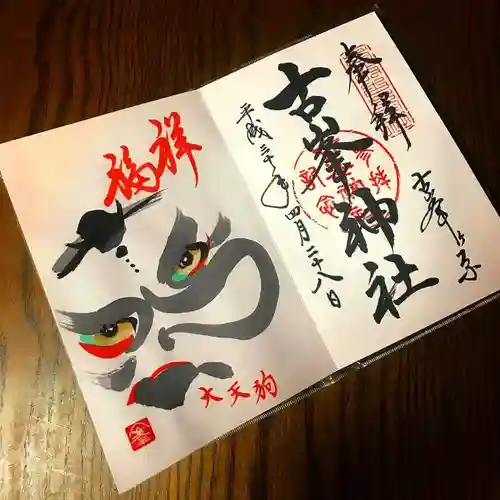 奉拝
古峯神社
平成三十年四月二十八日
古峯ヶ原
祥福
大天狗